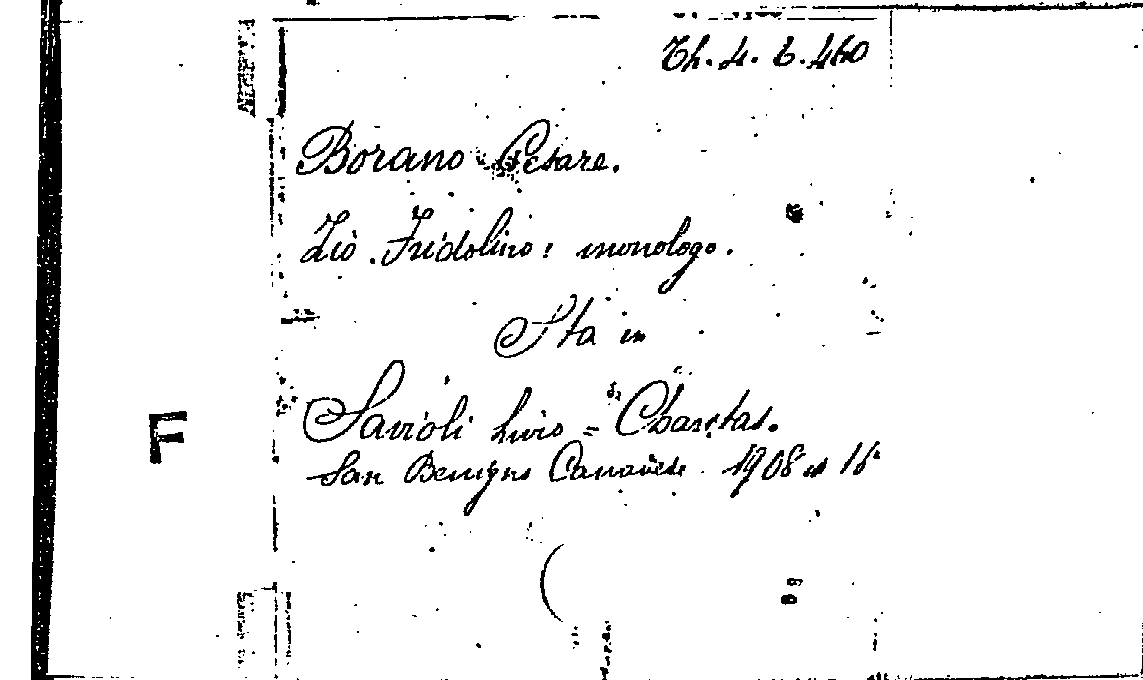 Th. 4. b. 460
Borano Cesare.
Zio Fridolino: monologo.
Sta in
F
Savioli Livio = Charitas.
San Benigno Canavese 1908 in 16°